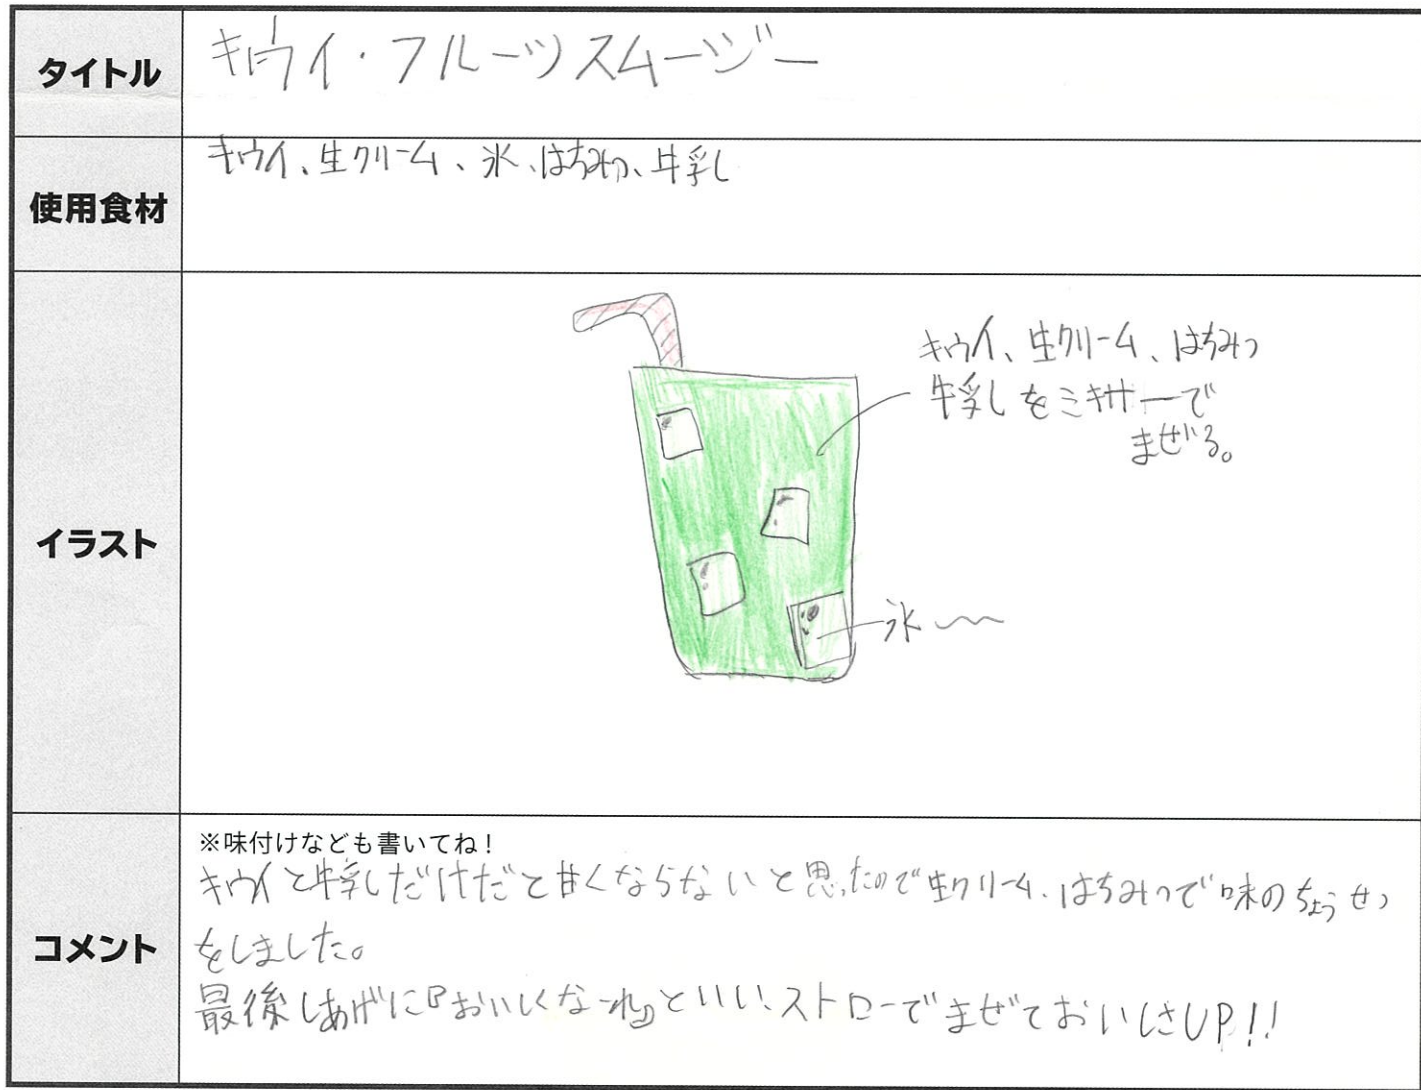 タイトル
キウイ・フルーツスムージー
使用食材
キウイ、生クリーム、氷、はちみつ、牛乳
イラスト
キウイ、生クリーム、はちみつ
牛乳をミキサーで
まぜる。
氷
コメント
※味付けなども書いてね!
キウイと牛乳だけだと甘くならないと思ったので生クリーム、はちみつで味のちょうせつ
をしました。
最後しあげに『おいしくなーれ』といい、ストローでまぜておいしさUP!!